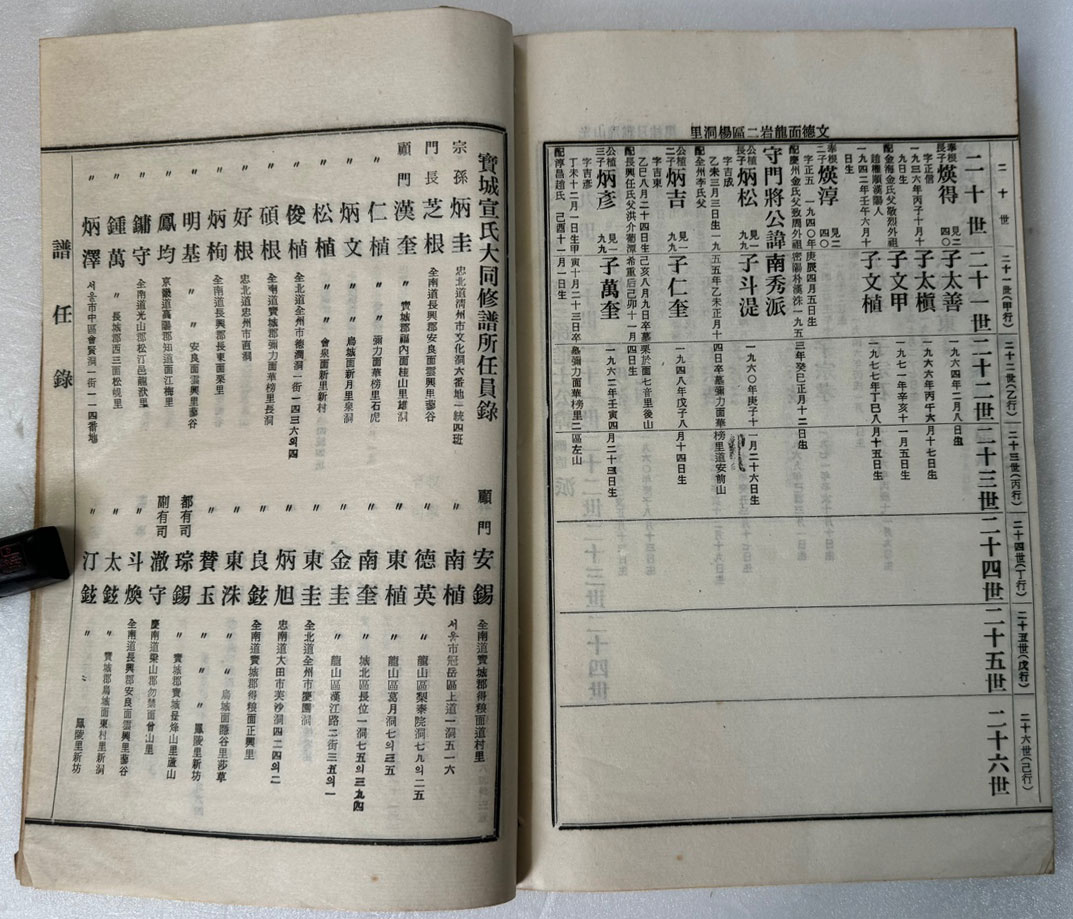 文德面龍岩二區楊洞里
二十世
二十一世(甲行)
二十二世(乙行)
二十三世(丙行)
二十四世(丁行)
二十五世(戊行)
二十六世(己行)
二十世 二十一世 二十二世 二十三世 二十四世 二十五世 二十六世
奉根長子 煐得 見二四〇 子太善 一九六四年二月八日生
字正信 子太槇 一九六六年丙午六月十七日生
一九三六年丙子十月十九日生
配金海金氏父敬烈外祖趙雕順漢陽人 子文甲 一九七一年辛亥十一月五日生
一九四二年壬午六月十日生 子文植 一九七七年丁巳八月十五日生
奉根二子 煐淳 見二四〇
字正五 一九四〇年庚辰四月五日生
配慶州金氏父致周外祖密陽朴漢洙一九五三年癸巳正月十二日生
守門將公諱南秀派
公植長子 炳松 見一九九 子斗湜 一九六〇年庚子十一月二十六日生
字吉成
乙未三月三日生一九五五年乙未正月十四日卒墓彌力面華榜里道安前山
配全州李氏父
公植二子 炳吉 見一九九 子仁奎 一九四八年戊子八月十四日生
字吉東
乙巳八月二十四日生己亥八月九日卒墓栗於面七音里後山
配長興任氏父洪介葡潭希重后己卯十一月四日生
公植三子 炳彥 見一九九 子萬奎 一九六二年壬寅四月二十三日生
字吉彥
丁未十二月一日生甲寅十月二十三日卒墓彌力面華榜里二區左山
配淳昌趙氏 己酉十一月一日生
寶城宣氏大同修譜所任員錄
宗孫 炳圭 忠北道清州市文化洞六番地一統四班
門長 芝根 全南道長興郡安良面雲興里蓼谷
顧門 漢奎 〃 寶城郡福內面桂山里雄洞
〃 仁植 〃 〃 彌力面華榜里石虎
〃 炳文 〃 〃 烏城面新月里泉洞
〃 松植 〃 〃 會泉面新里新村
〃 俊植 全北道全州市德津洞一街一四三六의四
〃 碩根 全南道寶城郡彌力面華榜里長洞
〃 好根 忠北道忠州市直洞
〃 炳枸 全南道長興郡長東面栗里
〃 明基 〃 〃 安良面雲興里蓼谷
〃 鳳均 京畿道高陽郡知道面江梅里
〃 鏞守 全南道光山郡松汀邑龍洑里
〃 鍾萬 〃 長城郡西三面松峴里
〃 炳澤 서울市中區會賢洞一街一一四番地
顧門 安錫 全南道寶城郡得粮面道村里
〃 南植 서울市冠岳區上道一洞五一六
〃 德英 〃 龍山區梨泰院洞七九의二五
〃 東植 〃 龍山區葛月洞七의三五
〃 南奎 〃 城北區長位一洞七五의三九四
〃 金圭 〃 龍山區漢江路二街三五의一
〃 東圭 全北道全州市慶園洞
〃 炳旭 忠南道大田市芙沙洞四二四의二
〃 良鉉 全南道寶城郡得粮面正興里
〃 東洙 〃 〃 烏城面隱谷里莎草
〃 贊玉 〃 〃 〃 鳳陵里新坊
都有司 琮錫 〃 寶城郡寶城邑烽山里蘆山
副有司 澈守 慶南道梁山郡勿禁面曾山里
〃 斗煥 全南道長興郡安良面雲興里蓼谷
〃 太鉉 〃 寶城郡烏城面東村里新洞
〃 汀鉉 〃 〃 鳳陵里新坊
譜任錄